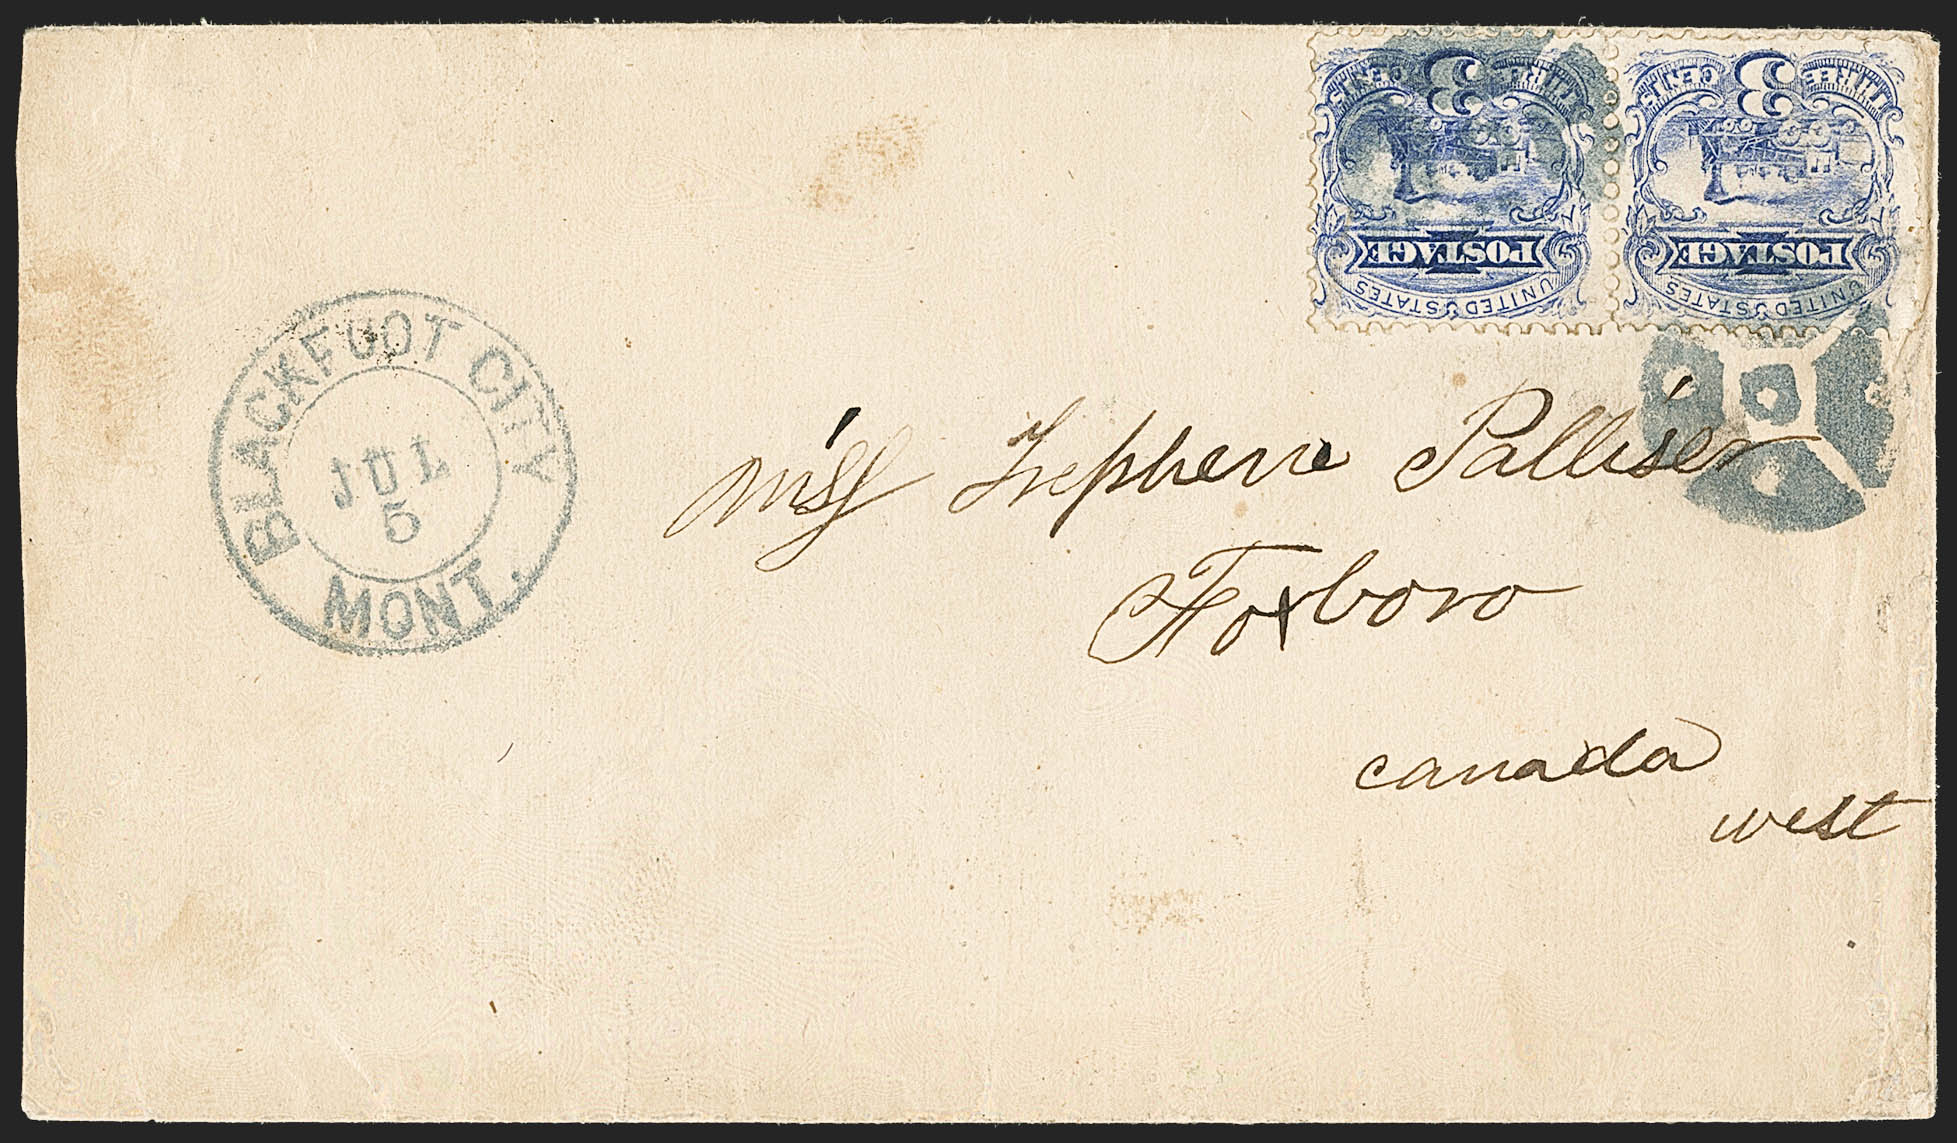 3
THREE CENTS
POSTAGE
UNITED STATES
3
THREE CENTS
POSTAGE
UNITED STATES
BLACKFOOT CITY
JUL
5
MONT.
Miss Palliser
Foxboro
canada
west